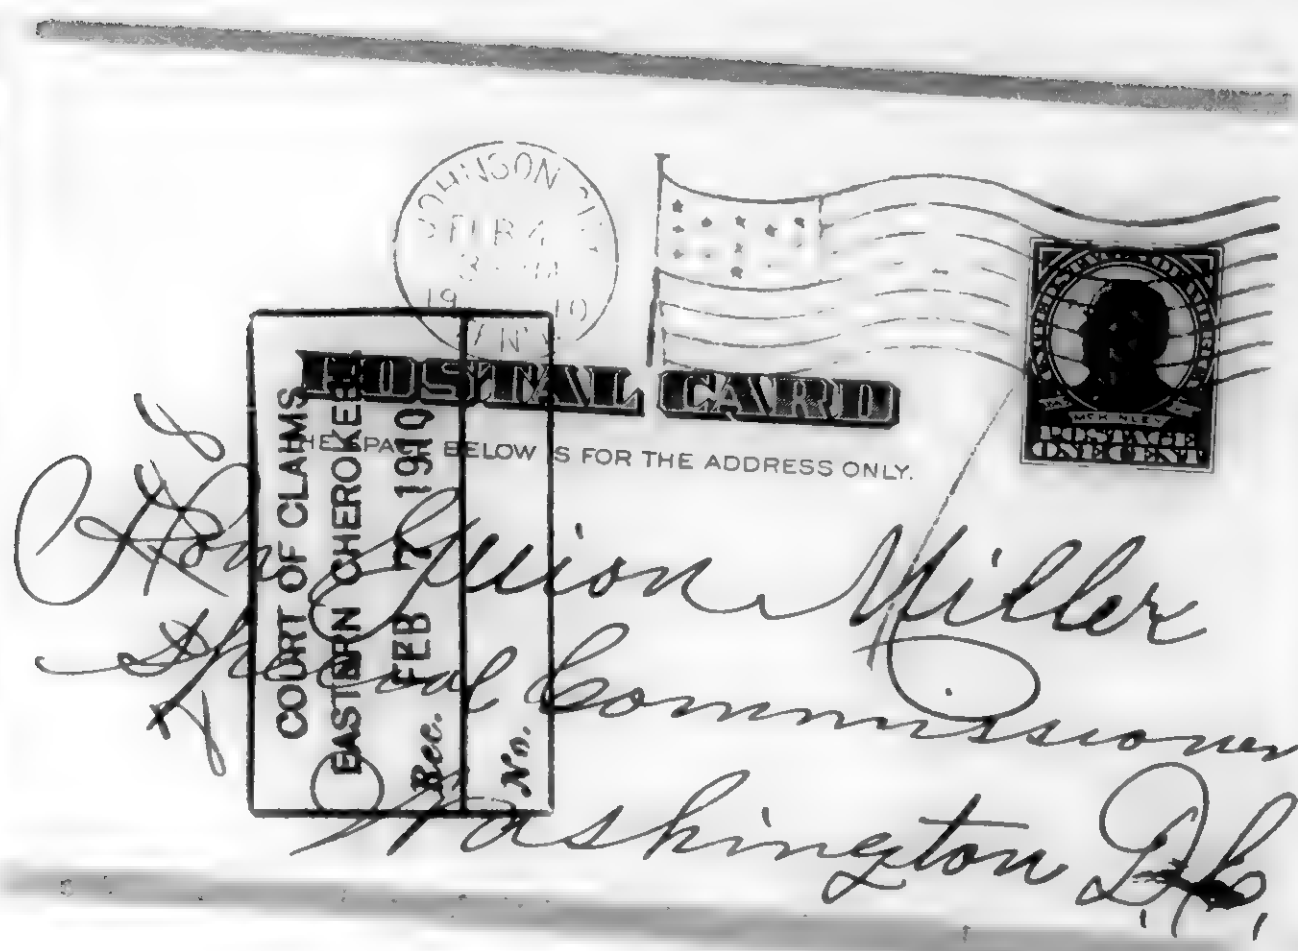 JOHNSON CITY
FEB 4
1910
N.Y.
POSTAL CARD
THE SPACE BELOW IS FOR THE ADDRESS ONLY.
McKINLEY
POSTAGE
ONE CENT
COURT OF CLAIMS
EASTERN CHEROKEE
Rec. FEB 7 1910
No.
Hon Guion Miller
Special Commissioner
Washington D.C.